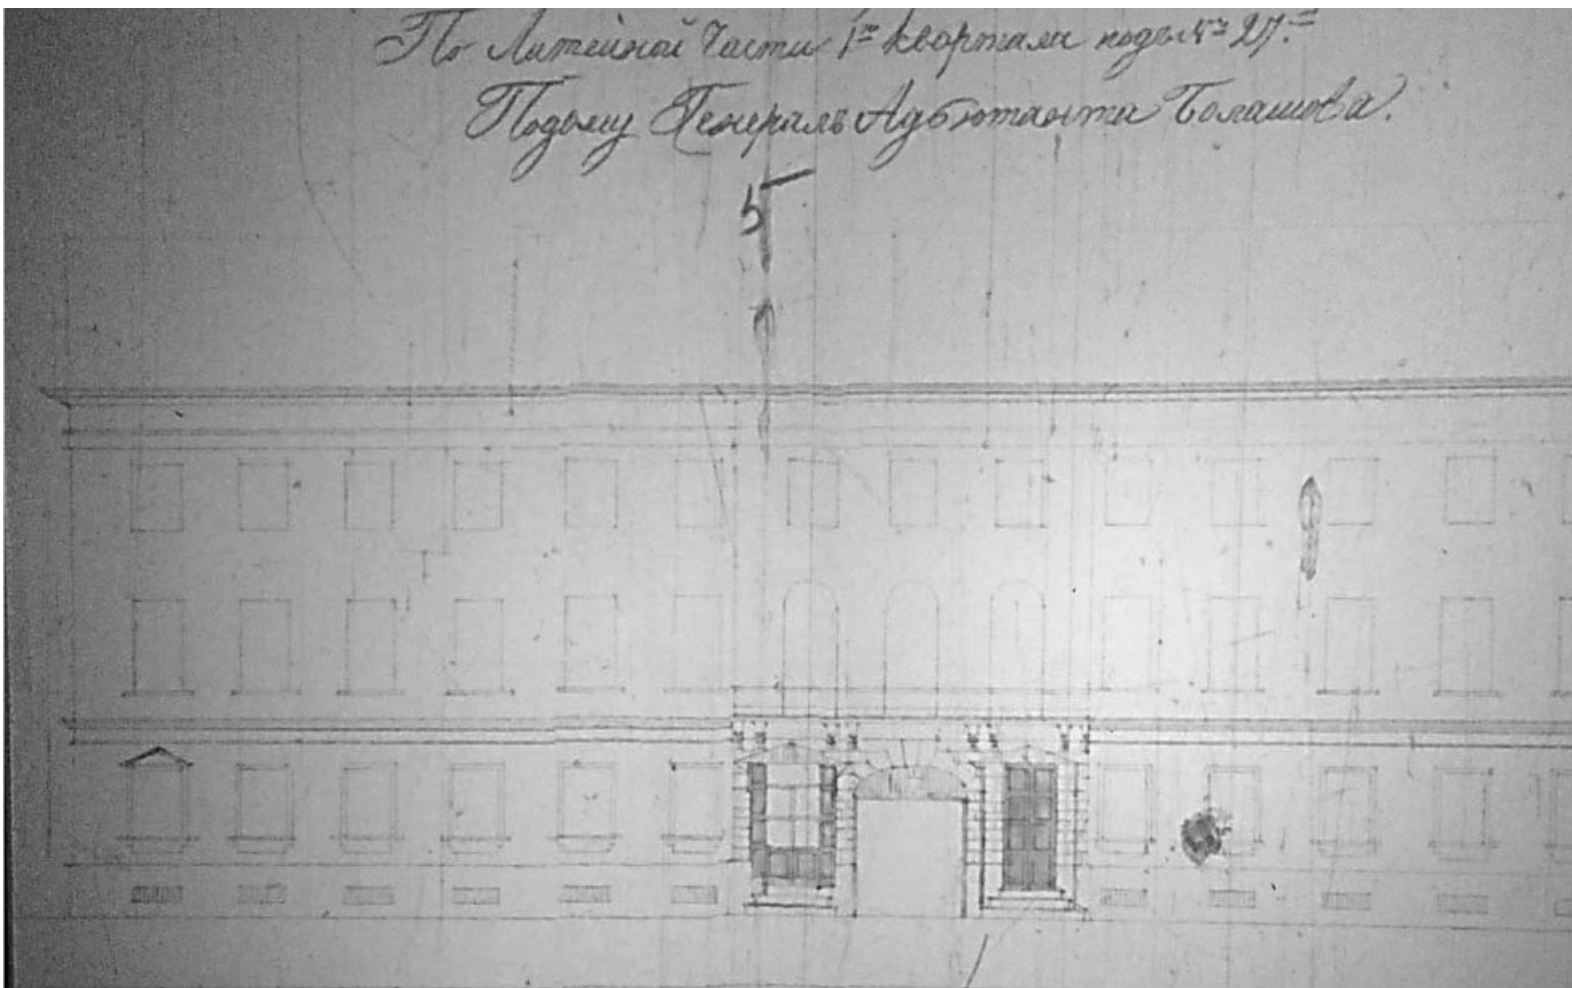 По Литейной Части 1го Квартала подъ № 27.
Подому Генералъ Адъютанта Балашова.
5